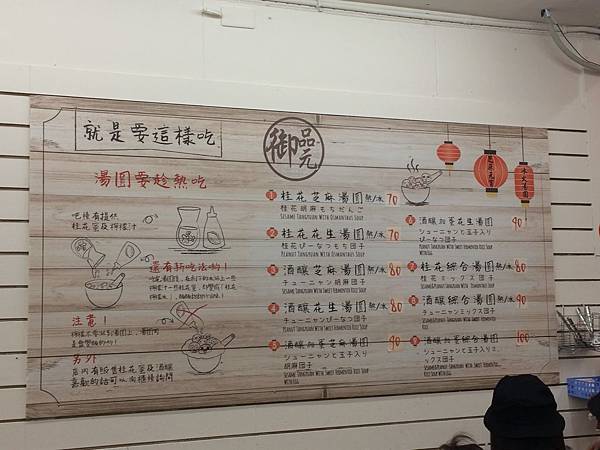 就是要這樣吃
御品元
湯圓要趁熱吃
吧檯有提供
桂花蜜及檸檬汁
還有新吃法喲!
注意!
另外
店內有販售桂花蜜及酒釀
喜歡的話可以向櫃檯詢問
1 桂花芝麻湯圓 熱/冰 70
桂花胡麻もちだんご
Sesame Tangyuan With Osmanthus Soup
2 桂花花生湯圓 熱/冰 70
桂花ぴーなつもち団子
Peanut Tangyuan With Osmanthus Soup
3 酒釀芝麻湯圓 熱/冰 80
チューニャン胡麻団子
Sesame Tangyuan With Sweet Fermented Rice Soup
4 酒釀花生湯圓 熱/冰 80
チューニャンぴーなつ団子
Peanut Tangyuan With Sweet Fermented Rice Soup
5 酒釀加蛋芝麻湯圓 90
シューニャンと玉子入り
胡麻団子
Sesame Tangyuan With Sweet Fermented Rice Soup
With Egg
6 酒釀加蛋花生湯圓 90
シューニャンと玉子入り
ぴーなつ団子
Peanut Tangyuan With Sweet Fermented Rice Soup
With Egg
7 桂花綜合湯圓 熱/冰 80
桂花ミックス団子
Sesame&Peanut Tangyuan With Osmanthus Soup
8 酒釀綜合湯圓 熱/冰 90
チューニャンミックス団子
Sesame&Peanut Tangyuan With Sweet Fermented
Rice Soup
9 酒釀加蛋綜合湯圓 100
シューニャンと玉子入りミ
ックス団子
Sesame&Peanut Tangyuan With Sweet Fermented
Rice Soup With Egg